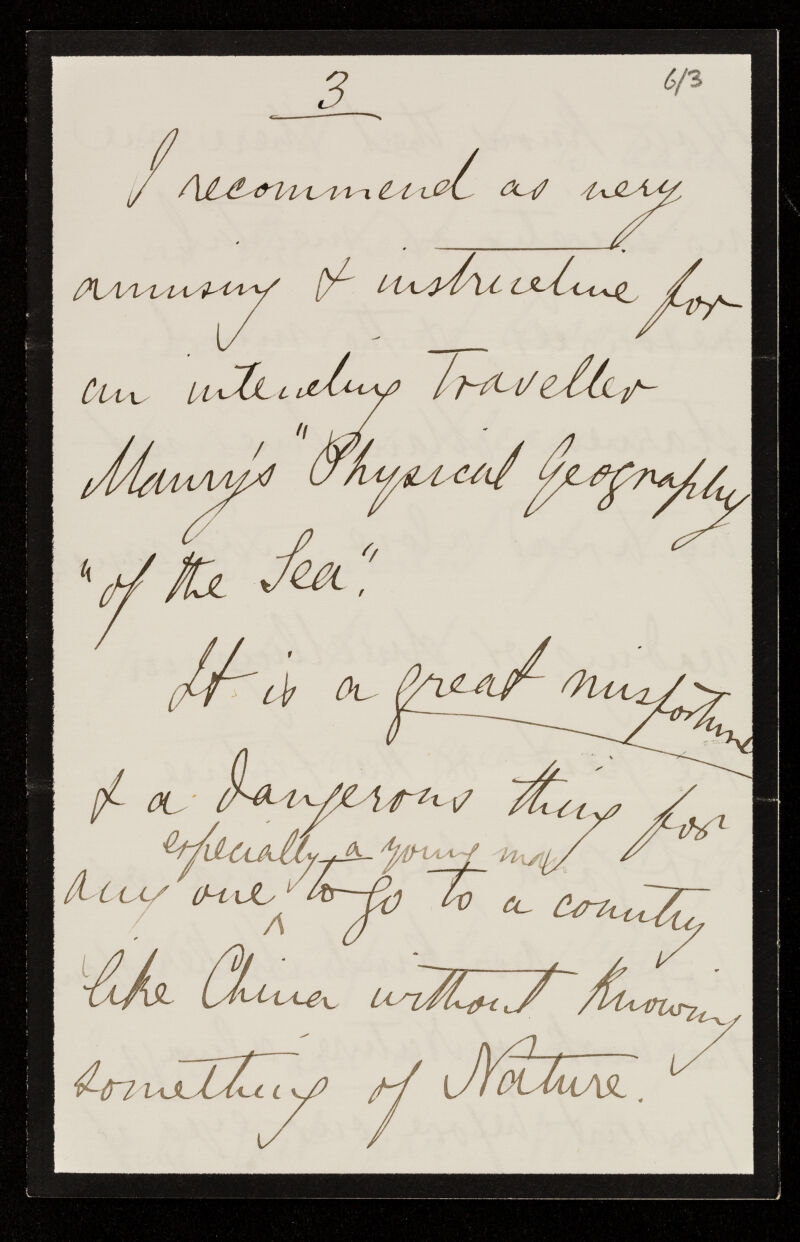 3
6/3
I recommend as very
amusing & instructive for
an intending traveller
Maury's "Physical Geography
"of the Sea".
It is a great misfortune
& a dangerous thing for
especially a young man
any one to go to a country
like China without knowing
something of Nature.